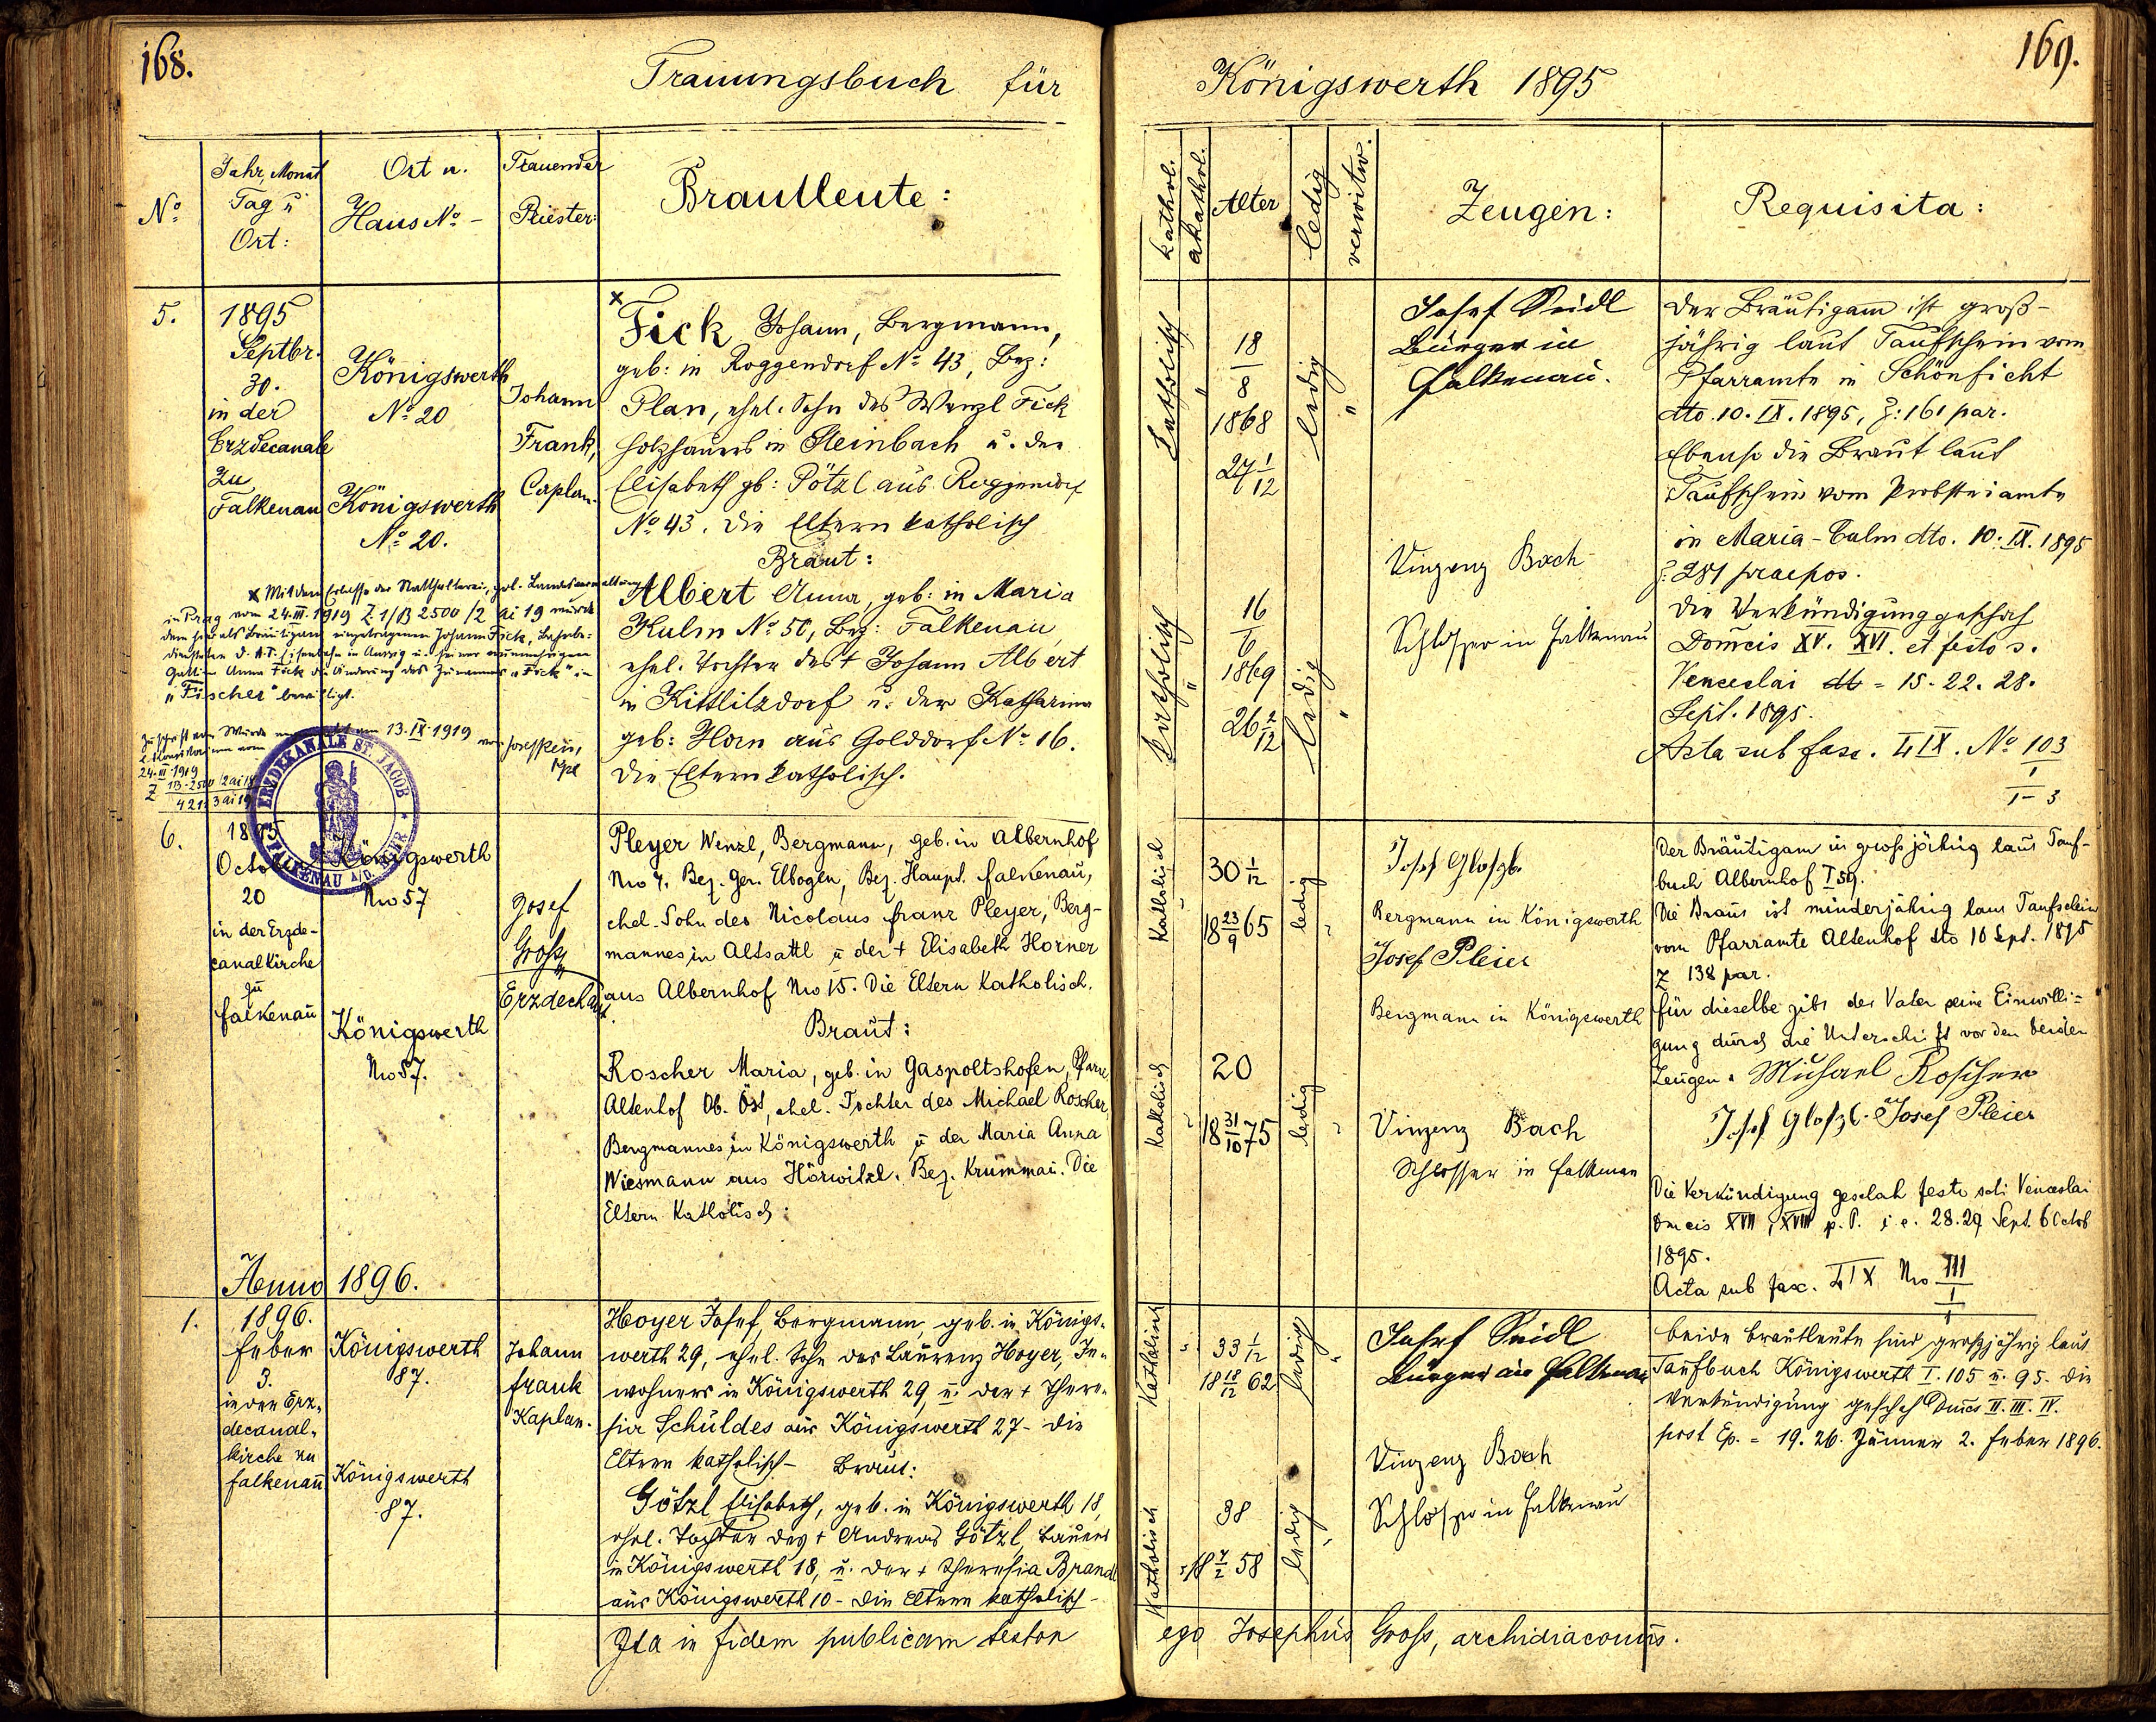 168.
Trauungsbuch für
Nº
Jahr, Monat
Tag u
Ort:
Ort u.
Haus Nº -
Trauender
Priester:
Brautleute:
5.
1895
Septbr.
30.
in der
Erzdecanale
zu
Falkenau
Königswerth
Nº 20
Königswerth
Nº 20.
Johann
Frank,
Caplan.
x
Fick Johann, Bergmann,
geb: in Roggendorf Nº 43, Bez:
Plan, ehel. Sohn des Wenzl Fick
Holzhauers in Steinbach u. der
Elisabeth gb: Pötzl aus Roggendorf
Nº 43. Die Eltern katholisch
Braut:
Albert Anna, geb: in Maria
Kulm Nº 50, Bez: Falkenau,
ehel. Tochter des + Johann Albert
in Kittlitzdorf u. der Katharina
geb: Horn aus Golddorf Nº 16.
Die Eltern katholisch.
x Mit dem Erlasse der Statthalterei, pol. Landesverwaltung
in Prag vom 24.III.1919 Z. 1/B 2500/2 ai 19 wurde
dem hier als Bräutigam eingetragenen Johann Fick,
Eisenbahn in Aussig u. seiner
Gattin Anna Fick die Änderung des Zunamens "Fick" in
"Fischer" bewilligt.
13.IX.1919
24.III.1919
ERZDEKANALE ST. JACOB
FALKENAU A/D. EGER
6.
1895
October
20
in der Erzde-
canalkirche
zu
Falkenau
Königswerth
Nro 57
Königswerth
Nro 57.
Josef
Gross
Erzdechant
Pleyer Wenzl, Bergmann, geb. in Albernhof
Nro 7. Bez. Ger. Elbogen, Bez. Haupt. Falkenau,
ehel. Sohn des Nicolaus Franz Pleyer, Berg-
mannes in Altsattl u der + Elisabeth Horner
aus Albernhof Nro 15. Die Eltern Katholisch.
Braut:
Roscher Maria, geb. in Gaspoltshofen, Pfarre
Altenhof Ob. Öst, ehel. Tochter des Michael Roscher,
Bergmannes in Königswerth u der Maria Anna
Wiesmann aus Hörwitzl. Bez. Krummau. Die
Eltern Katholisch:
Anno 1896.
1.
1896.
Feber
3.
in der Erz-
decanal-
kirche zu
Falkenau
Königswerth
87.
Königswerth
87.
Johann
Frank
Kaplan.
Hoyer Josef, Bergmann, geb. in Königs-
werth 29, ehel. Sohn des Laurenz Hoyer, In-
wohners in Königswerth 29, u. der + There-
sia Schuldes aus Königswerth 27 - Die
Eltern katholisch - Braut:
Götzl Elisabeth, geb. in Königswerth 18,
ehel. Tochter des + Andreas Götzl, Bauers
in Königswerth 18, u. der + Theresia Brandl
aus Königswerth 10 - Die Eltern katholisch -
Ita in fidem publicam testor
169.
Königswerth 1895
kathol.
akathol.
Alter
ledig
verwitw.
Zeugen:
Requisita:
Katholisch
"
18
8
1868
27 1/12
ledig
"
Josef Seidl
Bürger in
Falkenau.
Vinzenz Bach
Schlosser in Falkenau
katholisch
"
16
6
1869
26 2/12
ledig
"
Der Bräutigam ist groß-
jährig laut Taufschein vom
Pfarramte in Schönficht
dto. 10. IX. 1895, Z: 161 par.
Ebenso die Braut laut
Taufschein vom Probsteiamte
in Maria-Culm dto. 10. IX. 1895
Z. 281 praepos.
Die Verkündigung geschah
Domcis XV. XVI. et festo s.
Venceslai = 15. 22. 28.
Sept. 1895.
Acta sub fasc. IX. Nº 103
1
1-3
Katholisch
"
30 1/12
18 23/9 65
ledig
"
Josef
Bergmann in Königswerth
Josef Pleier
Bergmann in Königswerth
Katholisch
"
20
18 31/10 75
ledig
"
Vinzenz Bach
Schlosser in Falkenau
Der Bräutigam ist grossjährig laut Tauf-
buch Albernhof I 59.
Die Braut ist minderjährig laut Taufschein
vom Pfarramte Altenhof dto 10 Sept. 1895
Z 138 par.
für dieselbe gibt der Vater seine Einwilli-
gung durch die Unterschrift vor den beiden
Zeugen. Michael Roscher
Josef Josef Pleier
Die Verkündigung geschah festo scti Venceslai
Dmcis XVII, XVIII p. P. i e. 28. 29 Sept. 6 Octob
1895.
Acta sub fasc. IX Nro 111
1
1
Katholisch
"
33 1/12
18 18/12 62
ledig
"
Josef Seidl
Bürger in Falkenau
Vinzenz Bach
Schlosser in Falkenau
Katholisch
"
38
18 7/2 58
ledig
"
Beide Brautleute sind grossjährig laut
Taufbuch Königswerth I. 105 u. 95. Die
Verkündigung geschah Dmcs II. III. IV.
post Ep. = 19. 26. Jänner 2. Feber 1896.
ego Josephus Gross, archidiaconus.